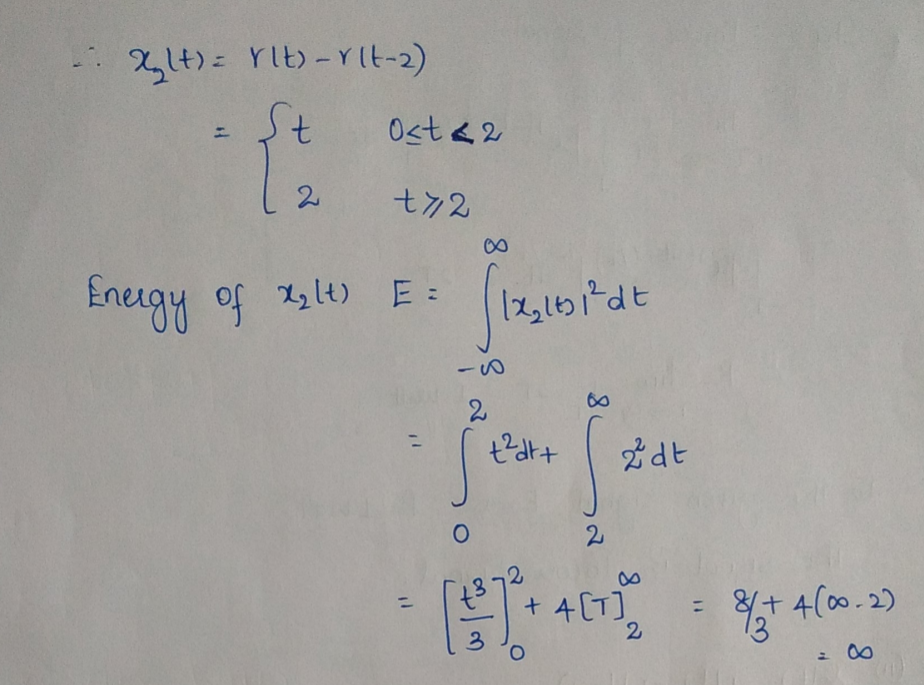 ∴ x₂(t) = r(t) - r(t-2)
= { t 0≤t<2
2 t≥2
Energy of x₂(t) E = ∫_{-∞}^{∞} |x₂(t)|² dt
= ∫_{0}^{2} t² dt + ∫_{2}^{∞} 2² dt
= [t³/3]_{0}^{2} + 4[T]_{2}^{∞} = 8/3 + 4(∞-2)
= ∞